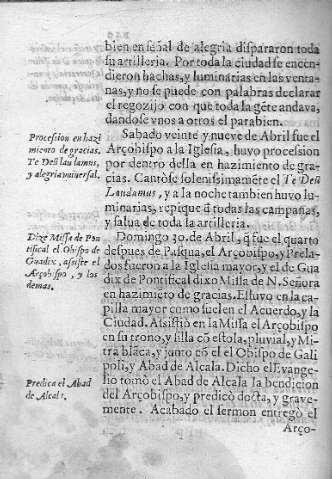 bien en señal de alegria dispararon toda
su artilleria. Por toda la ciudad se encen-
dieron hachas, y luminarias en las venta-
nas, y no se puede con palabras declarar
el regozijo con que toda la gẽte andava,
dandose vnos a otros el parabien.
Procession en hazi
miento de gracias.
Te Deũ laudamus,
y alegria universal.
Sabado veinte y nueve de Abril fue el
Arçobispo a la Iglesia, huvo procession
por dentro della en hazimiento de gra-
cias. Cantòse solenissimamẽte el Te Deũ
Laudamus, y a la noche tambien huvo lu-
minarias, repique ð todas las campañas,
y salua de toda la artilleria.
Dize Missa de Pon
tifical el Obispo de
Guadix, assiste el
Arçobispo, y los
demas.
Domingo 30. de Abril, q̃ fue el quarto
despues de Pasqua, el Arçobispo, y Prela-
dos fueron a la Iglesia mayor, y el de Gua
dix de Pontifical dixo Missa de N. Señora
en hazimiẽto de gracias. Estuvo en la ca-
pilla mayor como suelen el Acuerdo, y la
Ciudad. Assistiò en la Missa el Arçobispo
en su trono, y silla cõ estola, pluvial, y Mi-
tra blãca, y junto cõ el el Obispo de Gali-
poli, y Abad de Alcala. Dicho el Evange-
lio tomò el Abad de Alcala la bendicion
del Arçobispo, y predicò docta, y grave-
mente. Acabado el sermon entregò el
Predica el Abad
de Alcalà.
Arço-